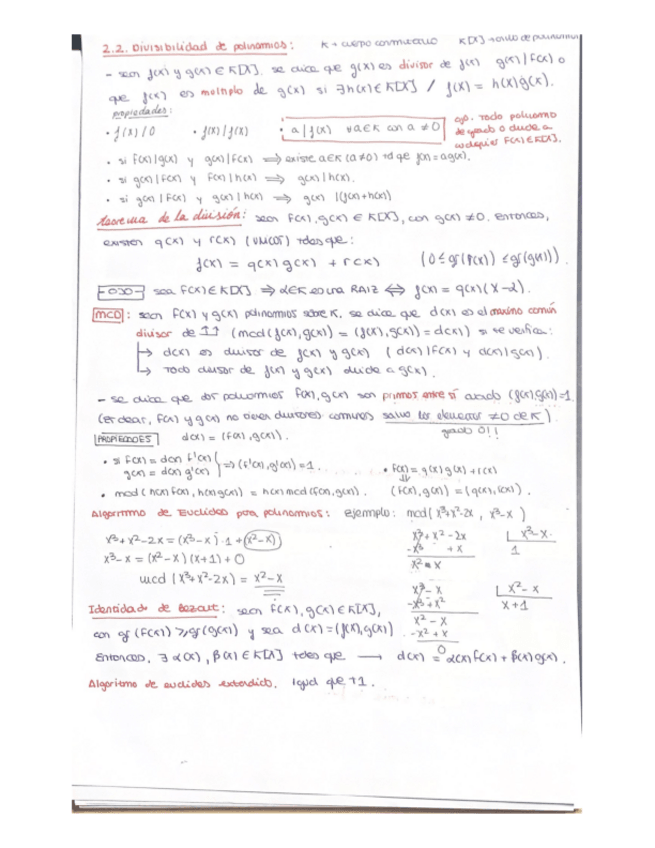 2.2. Divisibilidad de polinomios: K → cuerpo conmutativo K[X] →
- sean f(x) y g(x) ∈ K[X]. se dice que g(x) es divisor de f(x) g(x) | f(x) o
que f(x) es multiplo de g(x) si ∃ h(x) ∈ K[X] / f(x) = h(x)g(x).
propiedades:
· f(x) | 0 · f(x) | f(x) · a | f(x) ∀a∈K con a ≠ 0
ojo. Todo polinomio de grado 0 divide a cualquier f(x) ∈ K[X].
· si f(x) | g(x) y g(x) | f(x) ⟹ existe a∈K (a≠0) tq que f(x) = a g(x).
· si g(x) | f(x) y f(x) | h(x) ⟹ g(x) | h(x).
· si g(x) | f(x) y g(x) | h(x) ⟹ g(x) | (f(x)+h(x))
teorema de la división: sean f(x), g(x) ∈ K[X], con g(x) ≠ 0. Entonces,
existen q(x) y r(x) (únicos) tales que:
f(x) = q(x) g(x) + r(x) (0 ≤ gr(r(x)) ≤ gr(g(x))).
sea f(x) ∈ K[X] ⟹ α∈K es una RAIZ ⟺ f(x) = q(x)(x-α).
MCD: sean f(x) y g(x) polinomios sobre K, se dice que d(x) es el máximo común
divisor de ↑↑ (mcd(f(x),g(x)) = (f(x),g(x)) = d(x)) si se verifica:
↳ d(x) es divisor de f(x) y g(x) (d(x) | f(x) y d(x) | g(x)).
↳ Todo divisor de f(x) y g(x) divide a g(x).
- se dice que dos polinomios f(x), g(x) son primos entre sí cuando (f(x),g(x))=1
(es decir, f(x) y g(x) no tienen divisores comunes salvo los elementos ≠0 de K).
grado 0!!
PROPIEDADES d(x) = (f(x), g(x)).
· si f(x) = d(x) f'(x)
g(x) = d(x) g'(x) ⟹ (f'(x), g'(x)) = 1.
· f(x) = g(x) q(x) + r(x)
⇓
· mcd (h(x) f(x), h(x) g(x)) = h(x) mcd (f(x), g(x)). (f(x), g(x)) = (g(x), r(x)).
Algoritmo de Euclides para polinomios: ejemplo: mcd (x³+x²-2x, x³-x)
x³+x²-2x = (x³-x)·1 + (x²-x)
x³-x = (x²-x)(x+1) + 0
mcd (x³+x²-2x) = x²-x
x³+x²-2x | x³-x
-x³ + x 1
x² - x
x³-x | x²-x
-x³+x² x+1
x²-x
-x²+x
0
Identidad de Bezout: sean f(x), g(x) ∈ K[X],
con gr(f(x)) ≥ gr(g(x)) y sea d(x) = (f(x), g(x))
Entonces, ∃ α(x), β(x) ∈ K[X] tales que ⟶ d(x) = α(x) f(x) + β(x) g(x).
Algoritmo de euclides extendido. Igual que T1.